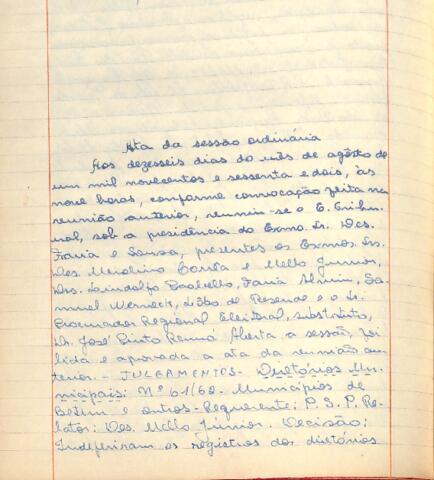 Ata da sessão ordinária
Aos dezesseis dias do mês de agôsto de
um mil novecentos e sessenta e dois, às
nove horas, conforme convocação feita na
reunião anterior, reuniu-se o E. Tribu-
nal, sob a presidência do Exmo. Sr. Des.
Faria e Sousa, presentes os Exmos. Srs.
Des. Merolino Corrêa e Mello Júnior,
Drs. Lindolfo Paoliello, Faria Alvim, Sa-
muel Werneck, Lôbo de Resende e o Sr.
Procurador Regional Eleitoral, substituto,
Dr. José Pinto Renó. Aberta a sessão, foi
lida e aprovada a ata da reunião an-
terior. - JULGAMENTOS - Diretórios Mu-
nicipais: Nº 61/62. Municípios de
Betim e outros - Requerente: P. S. P. Re-
lator: Des. Mello Júnior. Decisão:
Indeferiram os registros dos diretórios